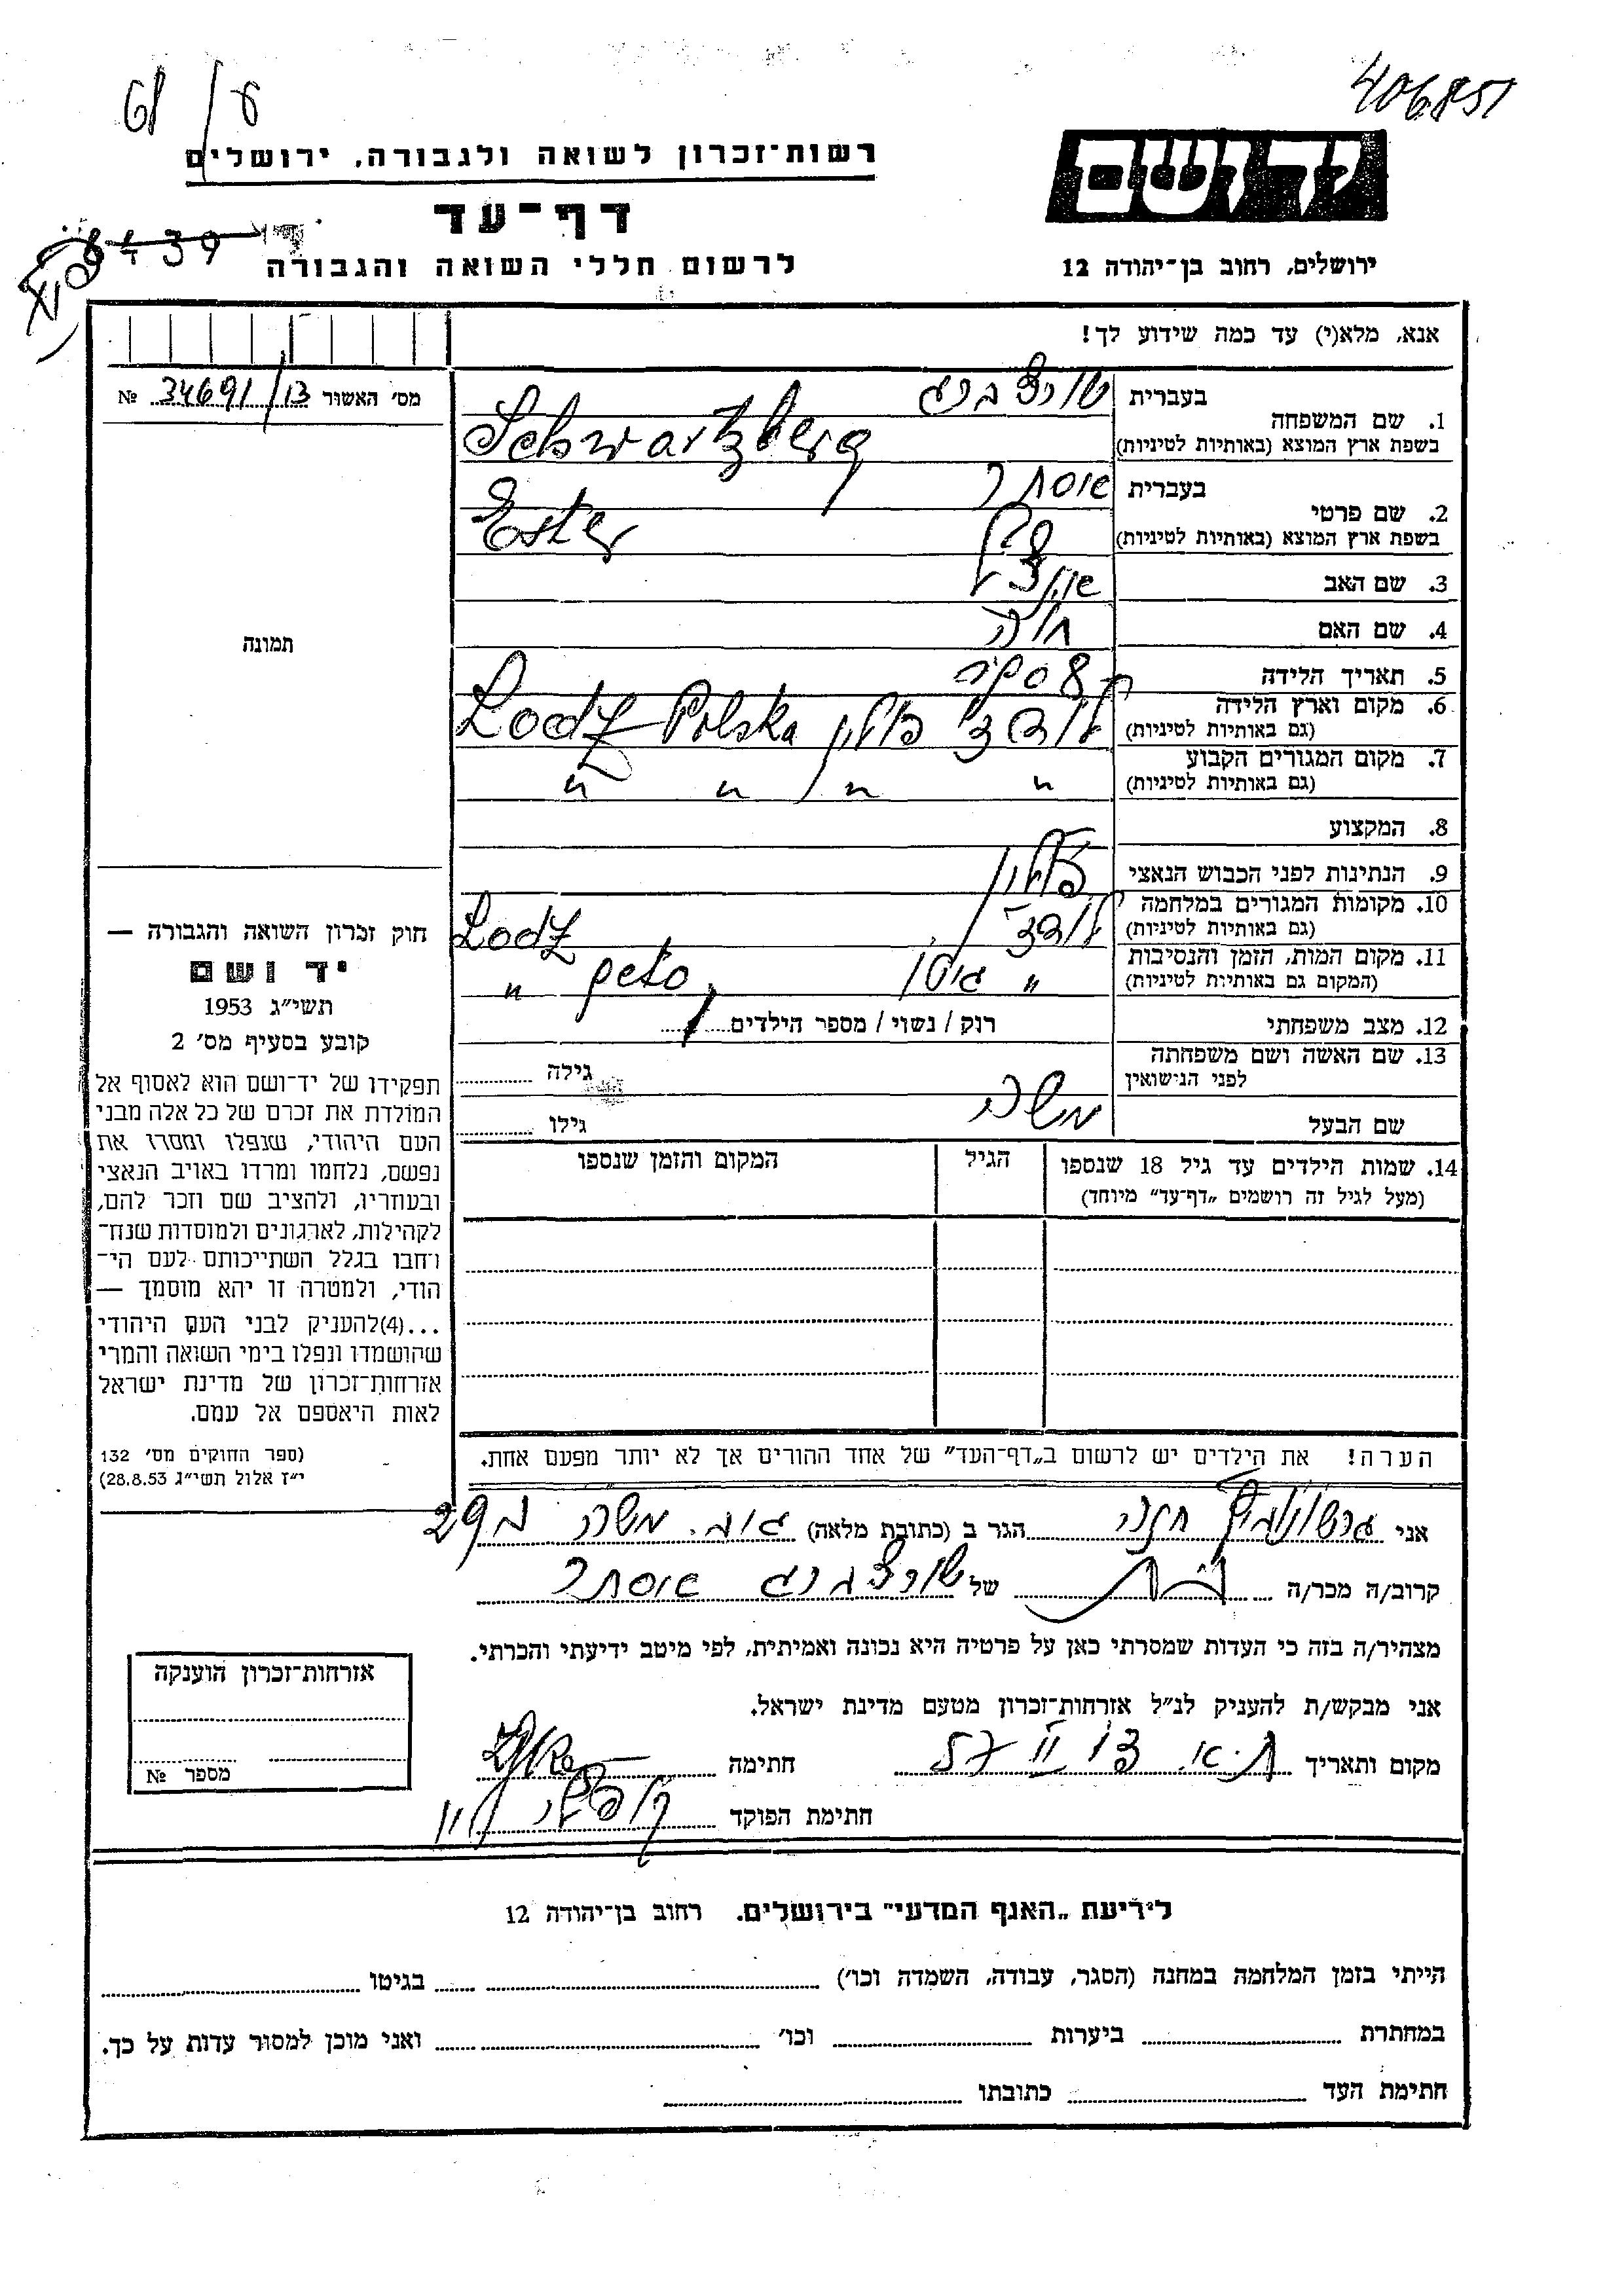 406851
61/8
רשות־זכרון לשואה ולגבורה, ירושלים
יד ושם
דף־עד
6439
לרשום חללי השואה והגבורה
ירושלים, רחוב בן־יהודה 12
אנא, מלא(י) עד כמה שידוע לך!
מס׳ האשור 34691/13 №
1. שם המשפחה
בעברית שורצברג
בשפת ארץ המוצא (באותיות לטיניות) Schwartzberg
2. שם פרטי
בעברית אסתר
בשפת ארץ המוצא (באותיות לטיניות) Ester
3. שם האב
4. שם האם חוה
5. תאריך הלידה
6. מקום וארץ הלידה
(גם באותיות לטיניות) לודז׳ פולין Lodz Polska
7. מקום המגורים הקבוע
(גם באותיות לטיניות) " " / " "
8. המקצוע
9. הנתינות לפני הכבוש הנאצי פולין
10. מקומות המגורים במלחמה
(גם באותיות לטיניות) לודז׳ / Lodz
11. מקום המות, הזמן והנסיבות
(המקום גם באותיות לטיניות) " גיטו "
12. מצב משפחתי רוק / נשוי / מספר הילדים
13. שם האשה ושם משפחתה
לפני הנישואין
גילה
שם הבעל משה
גילו
14. שמות הילדים עד גיל 18 שנספו
(מעל לגיל זה רושמים „דף־עד״ מיוחד)
הגיל
המקום והזמן שנספו
הערה! את הילדים יש לרשום ב„דף־העד״ של אחד ההורים אך לא יותר מפעם אחת.
תמונה
חוק זכרון השואה והגבורה —
יד ושם
תשי״ג 1953
קובע בסעיף מס׳ 2
תפקידו של יד־ושם הוא לאסוף אל
המולדת את זכרם של כל אלה מבני
העם היהודי, שנפלו ומסרו את
נפשם, נלחמו ומרדו באויב הנאצי
ובעוזריו, ולהציב שם וזכר להם,
לקהילות, לארגונים ולמוסדות שנח־
רחבו בגלל השתייכותם לעם הי־
הודי, ולמטרה זו יהא מוסמך —
...(4)להעניק לבני העם היהודי
שהושמדו ונפלו בימי השואה והמרי
אזרחות־זכרון של מדינת ישראל
לאות היאספם אל עמם.
(ספר החוקים מס׳ 132
י״ז אלול תשי״ג 28.8.53)
אני גרשונוביץ חנה הגר ב (כתובת מלאה) גוב. משה 29
קרוב/ה מכר/ה בת של שורצברג אסתר
מצהיר/ה בזה כי העדות שמסרתי כאן על פרטיה היא נכונה ואמיתית, לפי מיטב ידיעתי והכרתי.
אני מבקש/ת להעניק לנ״ל אזרחות־זכרון מטעם מדינת ישראל.
מקום ותאריך ת.א. II 57 חתימה
חתימת הפוקד
אזרחות־זכרון הוענקה
מספר №
לידיעת „האגף המדעי״ בירושלים. רחוב בן־יהודה 12
הייתי בזמן המלחמה במחנה (הסגר, עבודה, השמדה וכו׳) בגיטו
במחתרת ביערות וכו׳ ואני מוכן למסור עדות על כך.
חתימת העד כתובתו